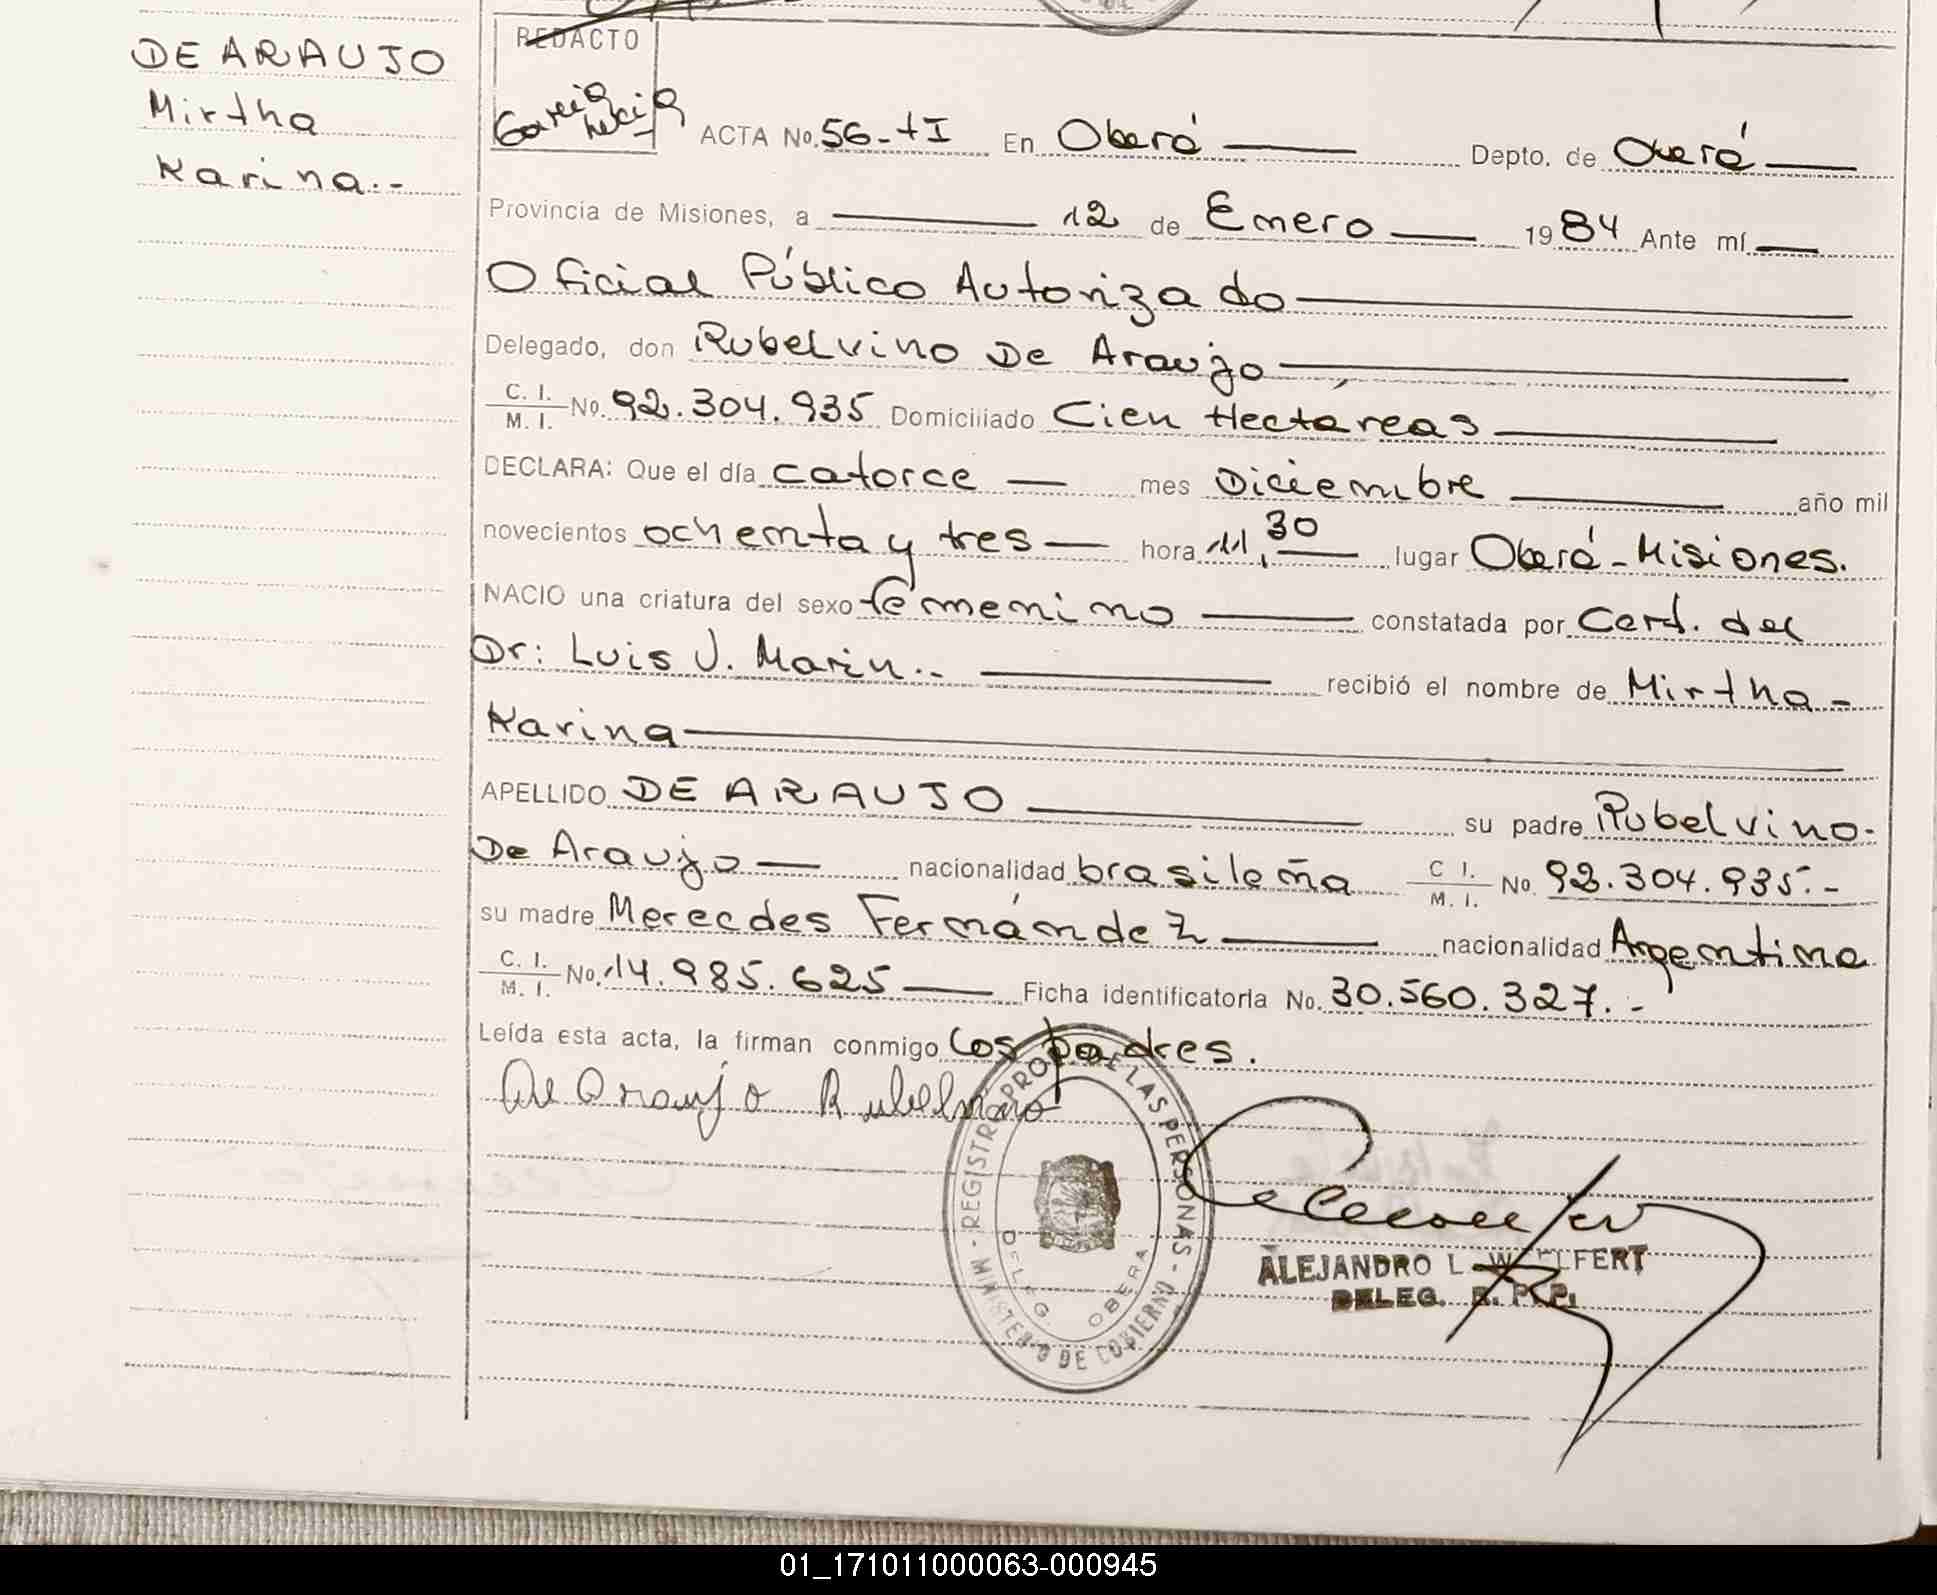 DE ARAUJO
Mirtha
Karina.-
REDACTO
García
ACTA No. 56-tI En Oberá Depto. de Oberá
Provincia de Misiones, a 12 de Enero 1984 Ante mí
Oficial Público Autorizado
Delegado, don Rubelvino De Araujo
C. I. M. I. No. 92.304.935 Domiciliado Cien Hectáreas
DECLARA: Que el día catorce mes Diciembre año mil
novecientos ochenta y tres hora 11,30 lugar Oberá-Misiones.
NACIO una criatura del sexo femenino constatada por Cert. del
Dr: Luis J. Marin.- recibió el nombre de Mirtha-
Karina
APELLIDO DE ARAUJO su padre Rubelvino-
De Araujo nacionalidad brasileña C I. M. I. No. 92.304.935.-
su madre Merecdes Fernández nacionalidad Argentina
C. I. M. I. No. 14.985.625 Ficha identificatoria No. 30.560.327.-
Leída esta acta, la firman conmigo Los padres.
De Araujo Rubelvino
REGISTRO PROV. DE LAS PERSONAS - MINISTERIO DE GOBIERNO -
DELEG. OBERA
ALEJANDRO L. FERT
DELEG. R. P. P.
01_171011000063-000945